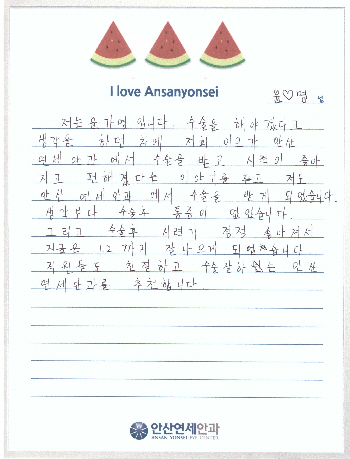 I love Ansanyonsei
윤♡영 님
저는 윤가영 입니다. 수술을 해야겠다고
생각을 하던 차에 저희 이모가 안산
연세안과에서 수술을 받고 시력이 좋아
지고 편해졌다는 이야기를 듣고 저도
안산 연세안과에서 수술을 받게 되었습니다.
생각보다 수술후 통증이 없었습니다.
그리고 수술후 시력이 점점 좋아져서
지금은 1.2까지 잘 나오게 되었습니다
직원들도 친절하고 수술잘하는 안산
연세안과를 추천합니다
안산연세안과
ANSAN YONSEI EYE CENTER